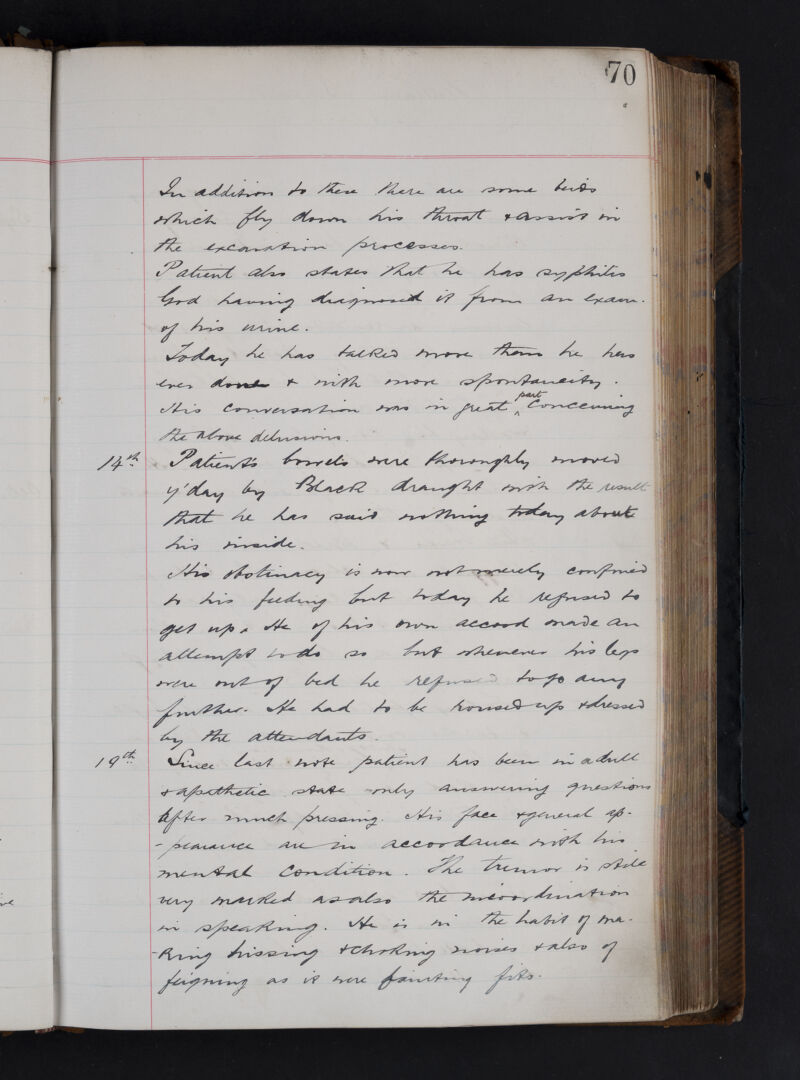 70
In addition to these there are some birds
which fly down his throat & assist in
the excavation processes.
Patient also states that he has syphilis
God having diagnosed it from an exam.
of his urine.
Today he has talked more than he has
ever done & with more spontaneity.
His conversation was in great part concerning
the above delusions.
14th Patient's bowels were thoroughly moved
y'day by Black draught with the result
that he has said nothing today about
his inside.
His obstinacy is now not merely confined
to his feeding but today he refused to
get up. He of his own accord made an
attempt to do so but whenever his legs
were out of bed he refused to go any
further. He had to be roused up & dressed
by the attendants.
19th Since last note patient has been in a dull
& apathetic state only answering questions
after much pressing. His face & general ap-
-pearance are in accordance with his
mental condition. The tremor is still
very marked as also the incoordination
in speaking. He is in the habit of ma-
-king hissing & choking noises & also of
feigning as it were fainting fits.